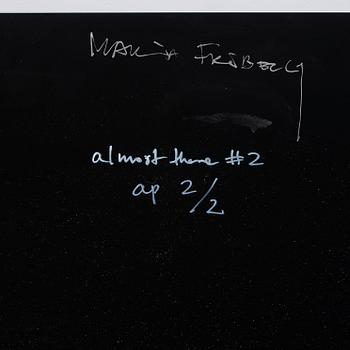 MARIA FRIBERG
almost there #2
ap 2/2